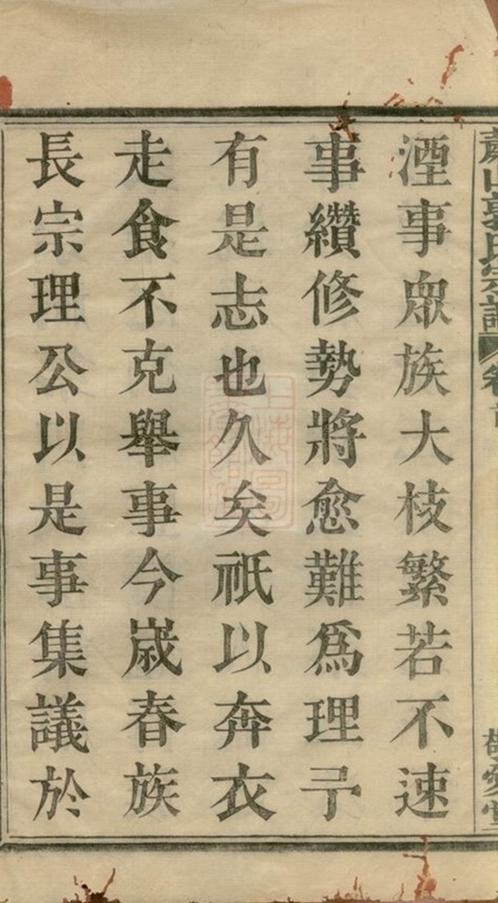 蕭山郭氏宗譜 卷首
湮事眾族大枝繁若不速
事纘修勢將愈難爲理予
有是志也久矣祇以奔衣
走食不克舉事今歲春族
長宗理公以是事集議於